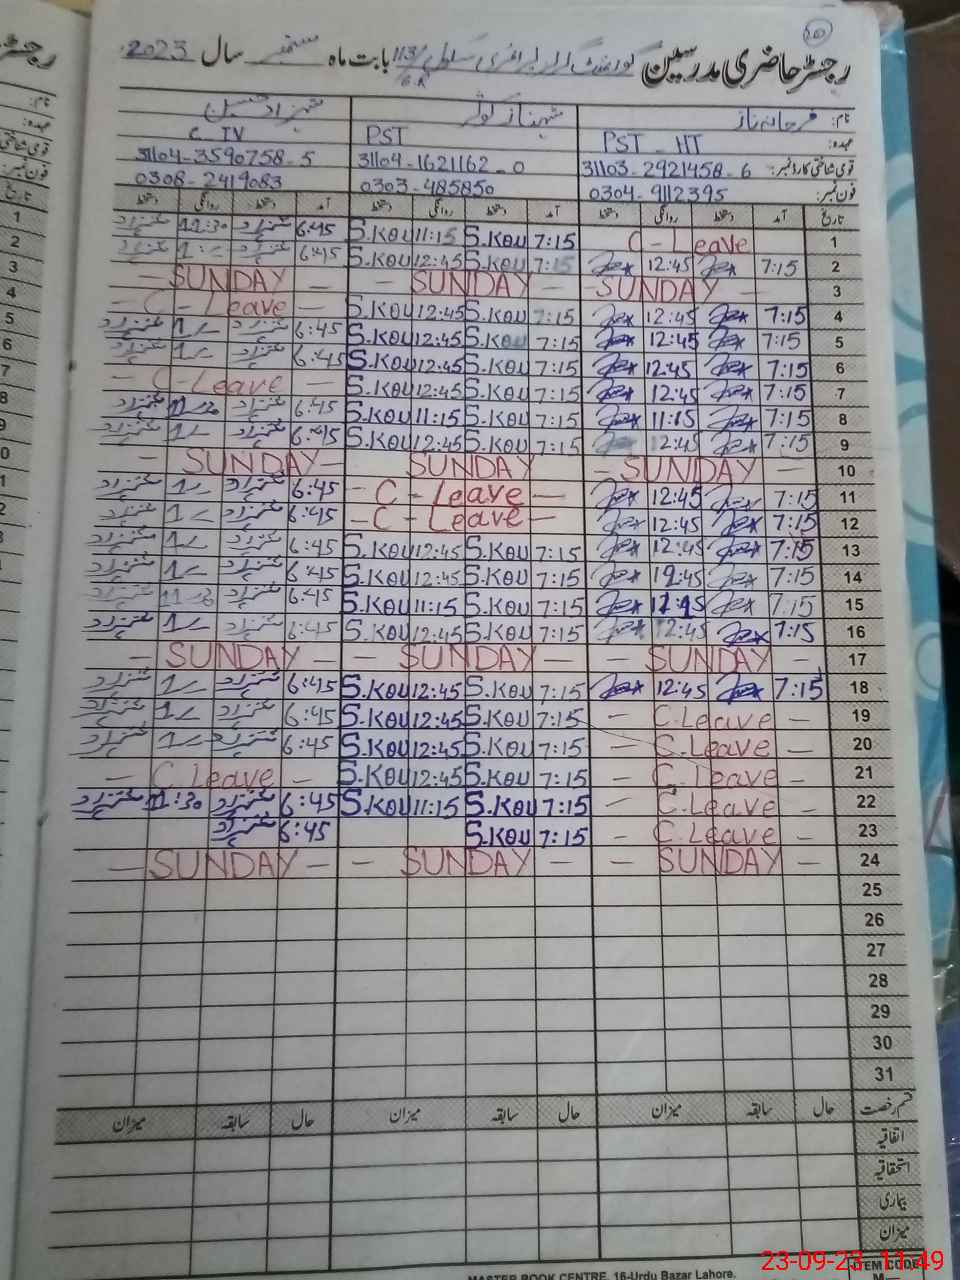 رجسٹر حاضری مدرسین گورنمنٹ گرلز پرائمری سکول 113/6.R بابت ماہ ستمبر سال 2023
نام: فرحانہ ناز شہناز کوثر شہزاد حسین
عہدہ: PST - HT PST C IV
قومی شناختی کارڈ نمبر: 31103-2921458-6 31104-1621162-0 31104-3590758-5
فون نمبر: 0304-9112395 0303-485850 0308-2419083
تاریخ آمد دستخط روانگی دستخط آمد دستخط روانگی دستخط آمد دستخط روانگی دستخط
1 C - Leave 7:15 S.KOU 11:15 S.KOU 6:45 شہزاد 11:30 شہزاد
2 7:15 12:45 7:15 S.KOU 12:45 S.KOU 6:45 شہزاد 1:- شہزاد
3 - SUNDAY - - SUNDAY - - SUNDAY -
4 7:15 12:45 7:15 S.KOU 12:45 S.KOU - C - Leave -
5 7:15 12:45 7:15 S.KOU 12:45 S.KOU 6:45 شہزاد 1/- شہزاد
6 7:15 12:45 7:15 S.KOU 12:45 S.KOU 6:45 شہزاد 1/- شہزاد
7 7:15 12:45 7:15 S.KOU 12:45 S.KOU - C - Leave -
8 7:15 11:15 7:15 S.KOU 11:15 S.KOU 6:45 شہزاد شہزاد
9 7:15 12:45 7:15 S.KOU 12:45 S.KOU 6:45 شہزاد 1/- شہزاد
10 - SUNDAY - SUNDAY - SUNDAY -
11 7:15 12:45 - C - Leave - 6:45 شہزاد 1/- شہزاد
12 7:15 12:45 - C - Leave - 6:45 شہزاد 1/- شہزاد
13 7:15 12:45 7:15 S.KOU 12:45 S.KOU 6:45 شہزاد 1/- شہزاد
14 7:15 12:45 7:15 S.KOU 12:45 S.KOU 6:45 شہزاد 1/- شہزاد
15 7:15 7:15 S.KOU 11:15 S.KOU 6:45 شہزاد شہزاد
16 7:15 12:45 7:15 S.KOU 12:45 S.KOU 6:45 شہزاد 1/- شہزاد
17 - SUNDAY - - SUNDAY - - SUNDAY -
18 7:15 12:45 7:15 S.KOU 12:45 S.KOU 6:45 شہزاد 1/- شہزاد
19 - C.Leave - 7:15 S.KOU 12:45 S.KOU 6:45 شہزاد 1/- شہزاد
20 - C.Leave - 7:15 S.KOU 12:45 S.KOU 6:45 شہزاد 1/- شہزاد
21 - C.Leave - 7:15 S.KOU 12:45 S.KOU - C.Leave -
22 - C.Leave - 7:15 S.KOU 11:15 S.KOU 6:45 شہزاد 11:30 شہزاد
23 - C.Leave - 7:15 S.KOU 6:45 شہزاد
24 - SUNDAY - - SUNDAY - - SUNDAY -
25
26
27
28
29
30
31
قسم رخصت حال سابقہ میزان حال سابقہ میزان حال سابقہ میزان
اتفاقیہ
استحقاقیہ
بیماری
میزان
MASTER BOOK CENTRE, 16-Urdu Bazar Lahore.
ITEM CODE
23-09-23 11:49